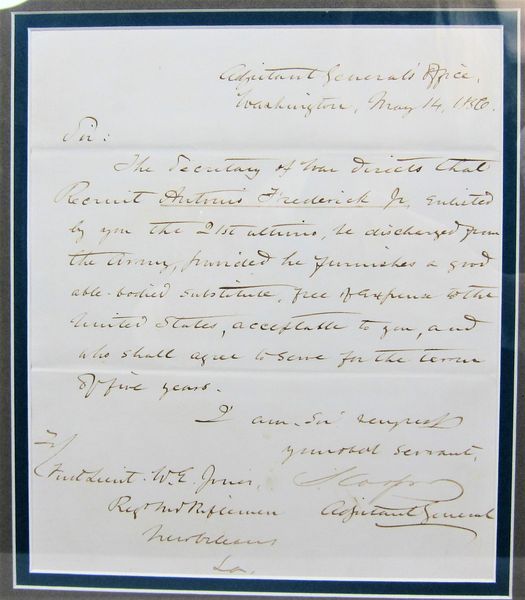 Adjutant General's Office,
Washington, May 14, 1856.
Sir:
The Secretary of War directs that
Recruit Antonio Frederick Jr, enlisted
by you the 21st ultimo, be discharged from
the Army, provided he furnishes a good
able-bodied substitute, free of expense to the
United States, acceptable to you, and
who shall agree to serve for the term
of five years.
I am Sir respect
your obt servant,
S. Cooper
Adjutant General
First Lieut. W. E. Jones,
Regt Md Riflemen
New Orleans
La.